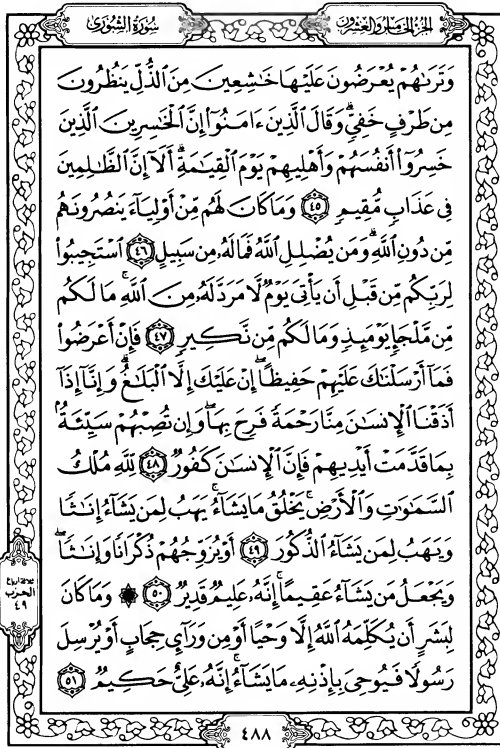 الجزء الخامس والعشرون
سورة الشورى
وَتَرَىٰهُمْ يُعْرَضُونَ عَلَيْهَا خَٰشِعِينَ مِنَ ٱلذُّلِّ يَنظُرُونَ
مِن طَرْفٍ خَفِىٍّ ۗ وَقَالَ ٱلَّذِينَ ءَامَنُوٓا۟ إِنَّ ٱلْخَٰسِرِينَ ٱلَّذِينَ
خَسِرُوٓا۟ أَنفُسَهُمْ وَأَهْلِيهِمْ يَوْمَ ٱلْقِيَٰمَةِ ۗ أَلَآ إِنَّ ٱلظَّٰلِمِينَ
فِى عَذَابٍ مُّقِيمٍ ٤٥ وَمَا كَانَ لَهُم مِّنْ أَوْلِيَآءَ يَنصُرُونَهُم
مِّن دُونِ ٱللَّهِ ۗ وَمَن يُضْلِلِ ٱللَّهُ فَمَا لَهُۥ مِن سَبِيلٍ ٤٦ ٱسْتَجِيبُوا۟
لِرَبِّكُم مِّن قَبْلِ أَن يَأْتِىَ يَوْمٌ لَّا مَرَدَّ لَهُۥ مِنَ ٱللَّهِ ۚ مَا لَكُم
مِّن مَّلْجَإٍ يَوْمَئِذٍ وَمَا لَكُم مِّن نَّكِيرٍ ٤٧ فَإِنْ أَعْرَضُوا۟
فَمَآ أَرْسَلْنَٰكَ عَلَيْهِمْ حَفِيظًا ۖ إِنْ عَلَيْكَ إِلَّا ٱلْبَلَٰغُ ۗ وَإِنَّآ إِذَآ
أَذَقْنَا ٱلْإِنسَٰنَ مِنَّا رَحْمَةً فَرِحَ بِهَا ۖ وَإِن تُصِبْهُمْ سَيِّئَةٌۢ
بِمَا قَدَّمَتْ أَيْدِيهِمْ فَإِنَّ ٱلْإِنسَٰنَ كَفُورٌ ٤٨ لِّلَّهِ مُلْكُ
ٱلسَّمَٰوَٰتِ وَٱلْأَرْضِ ۚ يَخْلُقُ مَا يَشَآءُ ۚ يَهَبُ لِمَن يَشَآءُ إِنَٰثًا
وَيَهَبُ لِمَن يَشَآءُ ٱلذُّكُورَ ٤٩ أَوْ يُزَوِّجُهُمْ ذُكْرَانًا وَإِنَٰثًا ۖ
وَيَجْعَلُ مَن يَشَآءُ عَقِيمًا ۚ إِنَّهُۥ عَلِيمٌ قَدِيرٌ ٥٠ ۞ وَمَا كَانَ
لِبَشَرٍ أَن يُكَلِّمَهُ ٱللَّهُ إِلَّا وَحْيًا أَوْ مِن وَرَآئِ حِجَابٍ أَوْ يُرْسِلَ
رَسُولًا فَيُوحِىَ بِإِذْنِهِۦ مَا يَشَآءُ ۚ إِنَّهُۥ عَلِىٌّ حَكِيمٌ ٥١
ثلاثة أرباع
الحزب
٤٩
٤٨٨